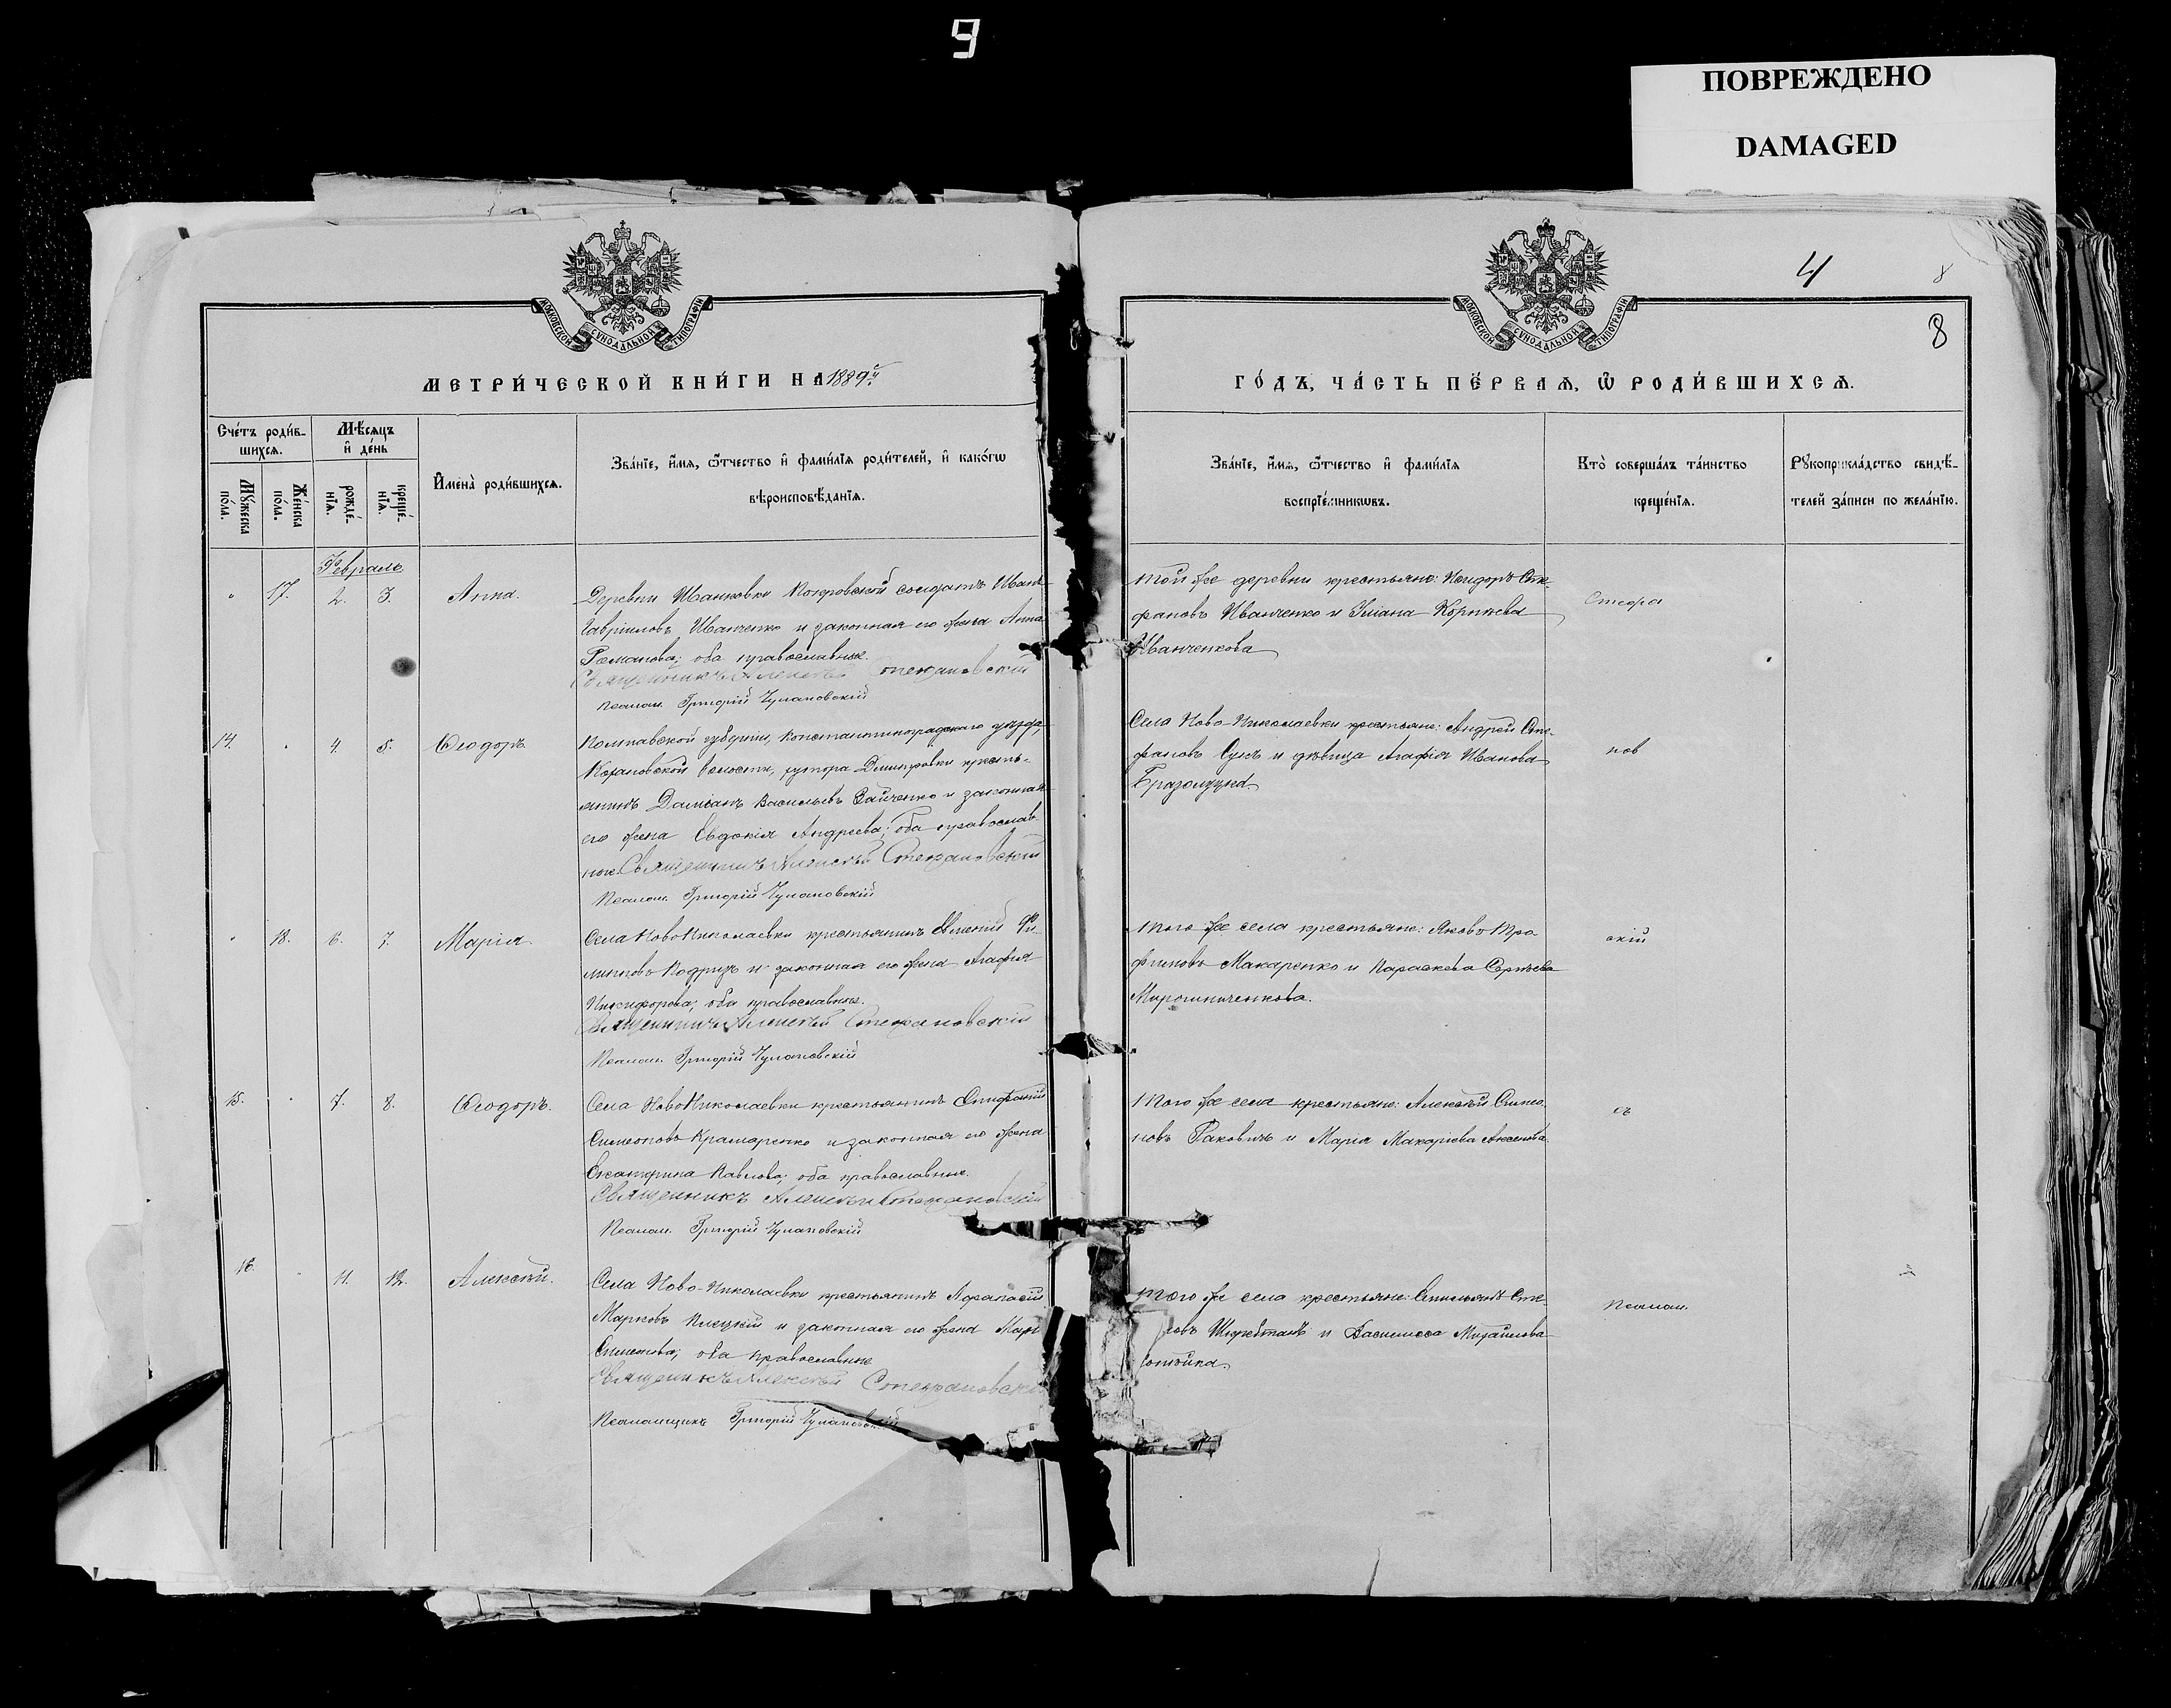 9
ПОВРЕЖДЕНО
DAMAGED
МОСКОВСКОЙ СѴНОДАЛЬНОЙ ТИПОГРАФІИ
МЕТРИ́ЧЕСКОЙ КНИ́ГИ НА 1889й
Сче́тъ роди́в-
шихсѧ.
Мѣ́сѧцъ
и҆ де́нь
Мꙋ́жеска
по́ла.
Же́нска
по́ла.
рожде́-
нїѧ.
креще́-
нїѧ.
И҆мена̀ роди́вшихсѧ.
Зва́нїе, и҆́мѧ, ѻ҆́тчество и҆ фами́лїѧ роди́телей, и҆ како́гѡ
вѣроисповѣ́данїѧ.
Февраль
" 17. 2. 3. Анна.
Деревни Иванковки Покровской солдатъ Иванъ
Гавріиловъ Иванченко и законная его жена Анна
Романова; оба православные.
Священникъ Алексѣй Стефановскій
Псалом. Григорій Чулановскій
14. " 4. 5. Ѳеодоръ.
Полтавской губерніи, Константиноградского уѣзда,
волости, хутора Дмитровки кресть-
янинъ Даміанъ Васильевъ Зайченко и законная
его жена Евдокія Андреева; оба православ-
ные. Священникъ Алексѣй Стефановскій
Псалом. Григорій Чулановскій
" 18. 6. 7. Марія.
Села Ново Николаевки крестьянинъ Евменій Фи-
липповъ и законная его жена Агафія
Никифорова; оба православные.
Священникъ Алексѣй Стефановскій
Псалом. Григорій Чулановскій
15. " 7. 8. Ѳеодоръ.
Села Ново Николаевки крестьянинъ Епифаній
Симеоновъ Крамаренко и законная его жена
Екатерина Павлова; оба православные.
Священникъ Алексѣй Стефановскій
Псалом. Григорій Чулановскій
16. " 11. 12. Алексѣй.
Села Ново-Николаевки крестьянинъ Афанасій
Марковъ и законная его жена Марі
оба православные
Священникъ Алексѣй Стефановскій
Псаломщикъ Григорій Чулановскій
4
8
8
МОСКОВСКОЙ СѴНОДАЛЬНОЙ ТИПОГРАФІИ
ГО́ДЪ, ЧА́СТЬ ПЕ́РВАѦ, Ѡ҆ РОДИ́ВШИХСѦ.
Зва́нїе, и҆́мѧ, ѻ҆́тчество и҆ фами́лїѧ
воспрїе́мникѡвъ.
Кто̀ соверша́лъ та́инство
креще́нїѧ.
Рꙋкоприкла́дство свидѣ́-
телей за́писи по жела́нїю.
Той же деревни крестьяне: Исидоръ Сте-
фановъ Иванченко и Корнѣева
Иванченкова
Стефа
Села Ново-Николаевки крестьяне: Андрей Сте-
фановъ Сукъ и дѣвица Агафія Иванова
нов
Того же села крестьяне: Яковъ Тро
фимовъ Макаренко и Параскева Сергѣева
Мирошниченкова.
скій
Того же села крестьяне: Алексѣй Симео
новъ Раковичъ и Марія Макаріева Аксенова
съ
Того же села крестьяне: Емельянъ Сте-
новъ и Василисса Михайлова
Псалом.